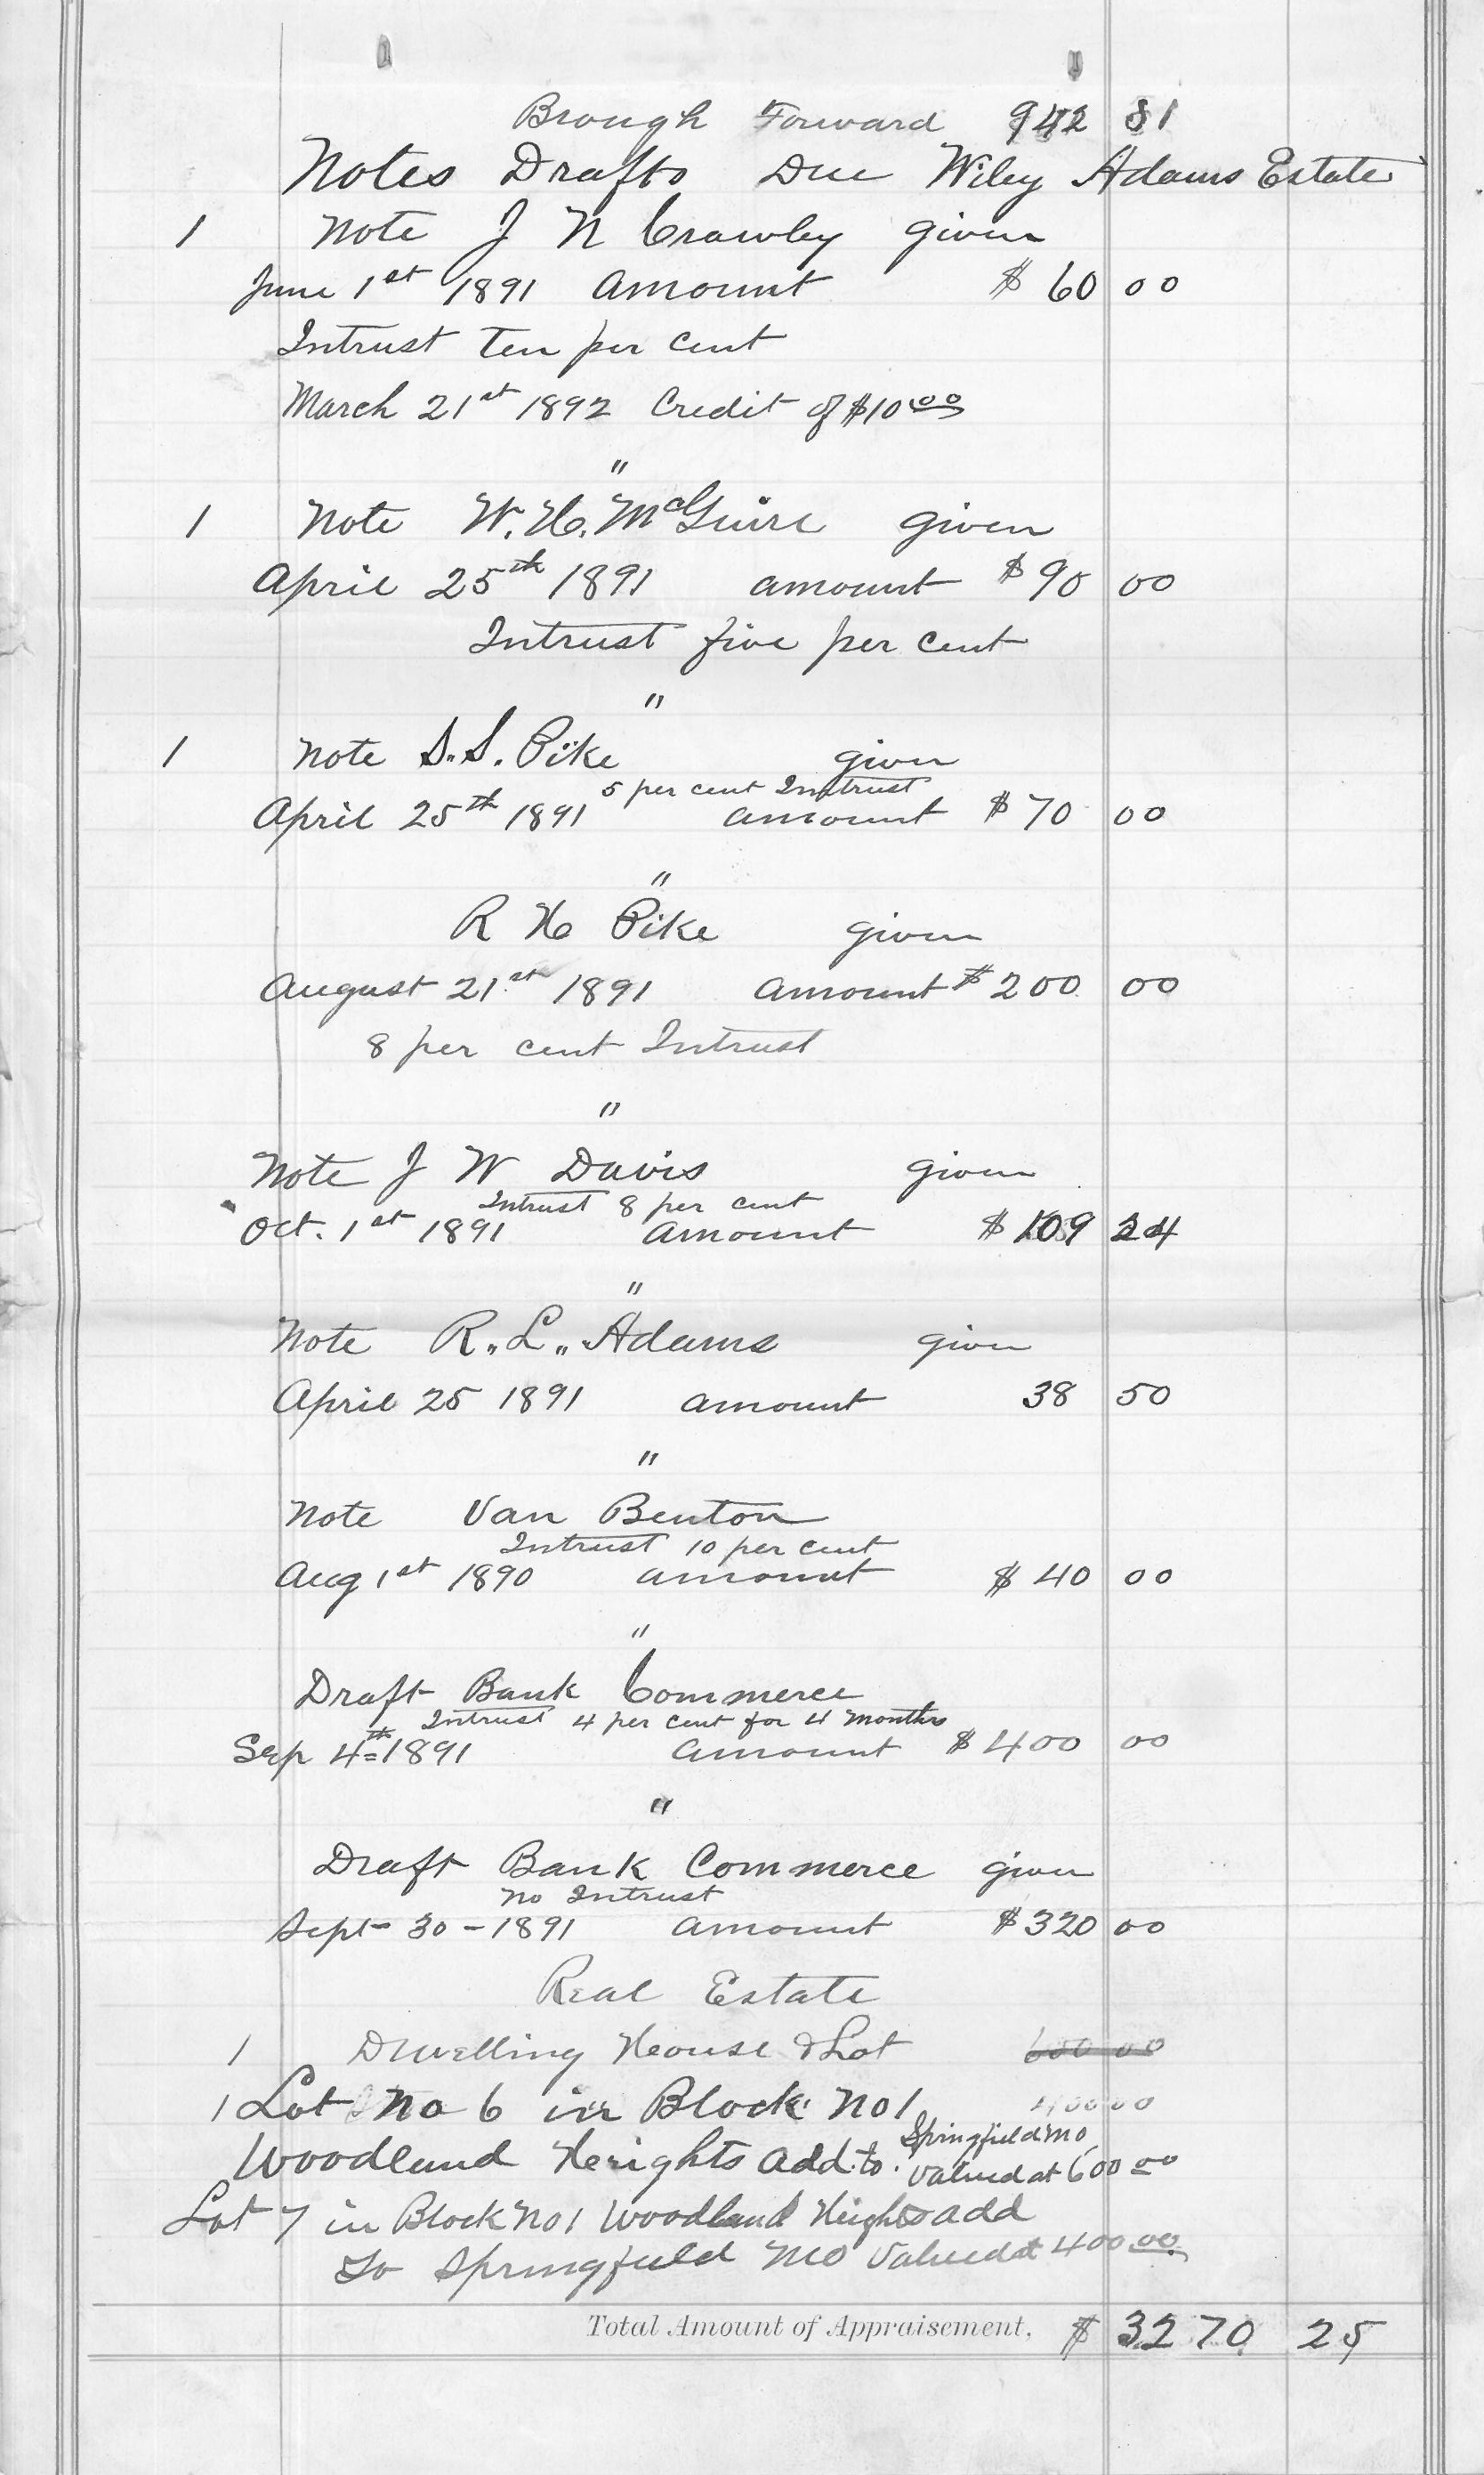 Brough Forward 942 81
Notes Drafts Due Wiley Adams Estate
1 Note J N Crawley given
June 1st 1891 amount $ 60 00
Intrust Ten per cent
March 21st 1892 Credit of $10.00
"
1 Note W. H. McGuire given
April 25th 1891 amount $ 90 00
Intrust five per cent
"
1 Note S. S. Pike given
5 per cent Intrust
April 25th 1891 amount $ 70 00
"
R H Pike given
August 21st 1891 amount $ 200 00
8 per cent Intrust
"
Note J W Davis given
Intrust 8 per cent
Oct. 1st 1891 amount $ 109 24
"
Note R. L. Adams given
April 25 1891 amount 38 50
"
Note Van Benton
Intrust 10 per cent
Aug 1st 1890 amount $ 40 00
"
Draft Bank Commerce
Intrust 4 per cent for 4 months
Sep 4th 1891 amount $ 400 00
"
Draft Bank Commerce given
No Intrust
Sept 30 - 1891 amount $ 320 00
Real Estate
1 Dwelling House & Lot 600 00
1 Lot No 6 in Block No 1 400 00
Woodland Heights add. to Springfield Mo
Valued at 600 00
Lot 7 in Block No 1 Woodland Heights add
To Springfield Mo Valued at 400 00
Total Amount of Appraisement, $ 3270 25